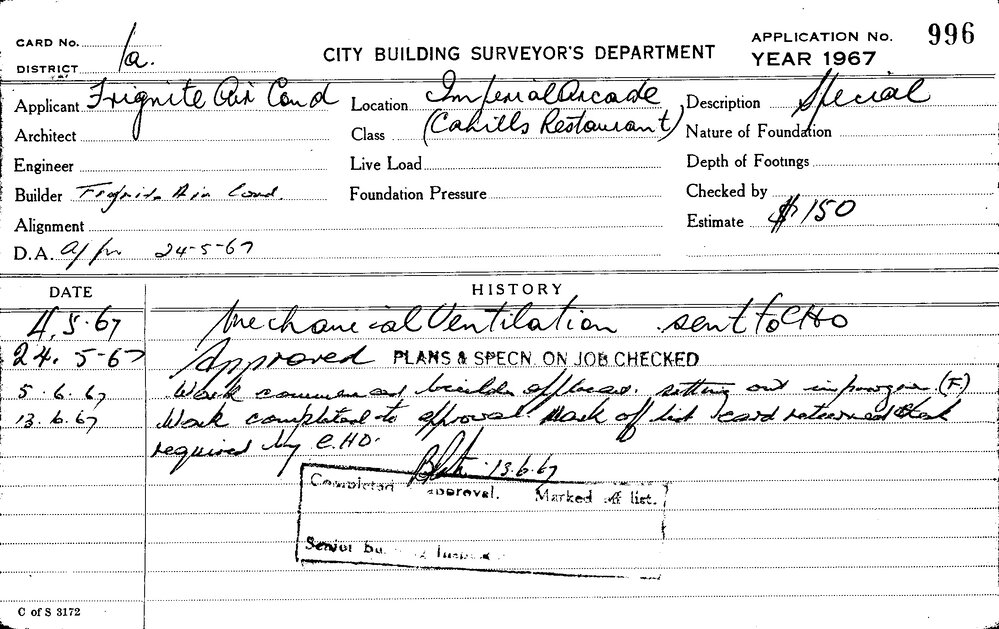 CARD No.
DISTRICT 1a.
CITY BUILDING SURVEYOR'S DEPARTMENT
APPLICATION No. 996
YEAR 1967
Applicant Frignite Air Cond
Location Imperial Arcade
(Cahills Restaurant)
Description Special
Architect
Class
Nature of Foundation
Engineer
Live Load
Depth of Footings
Builder Frignite Air Cond.
Foundation Pressure
Checked by
Alignment
Estimate $150
D.A. 24-5-67
DATE
HISTORY
4.5.67 Mechanical Ventilation sent to CHO
24.5-67 Approved PLANS & SPECN. ON JOB CHECKED
5.6.67 Work commenced builder setting out in progress. (F.)
13.6.67 Work completed to approval Mark off list card returned
required by C.H.O.
13.6.67
Completed approval. Marked off list.
Senior
C of S 3172